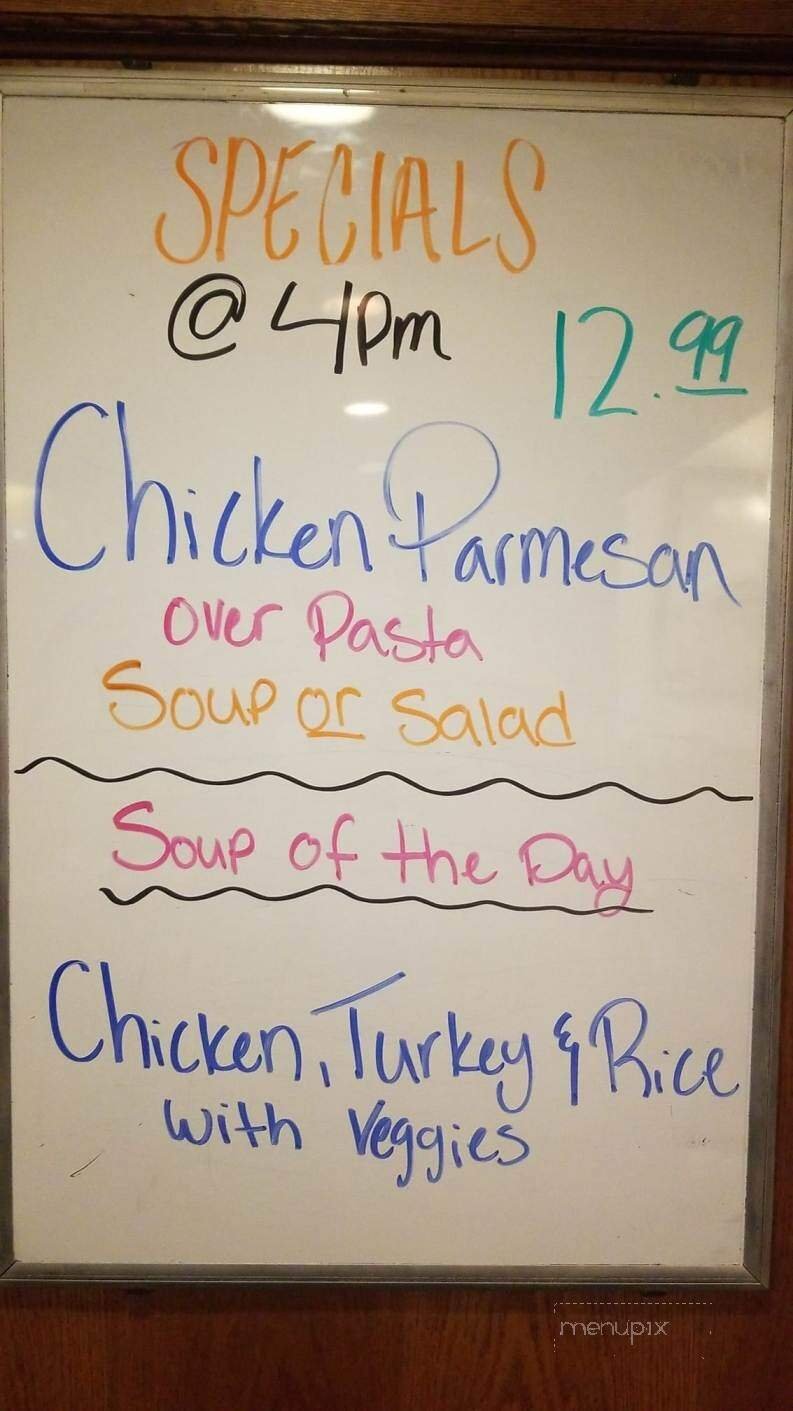 SPECIALS
@ 4pm
12.99
Chicken Parmesan
over Pasta
Soup or Salad
Soup of the Day
Chicken, Turkey & Rice
with Veggies
menupix